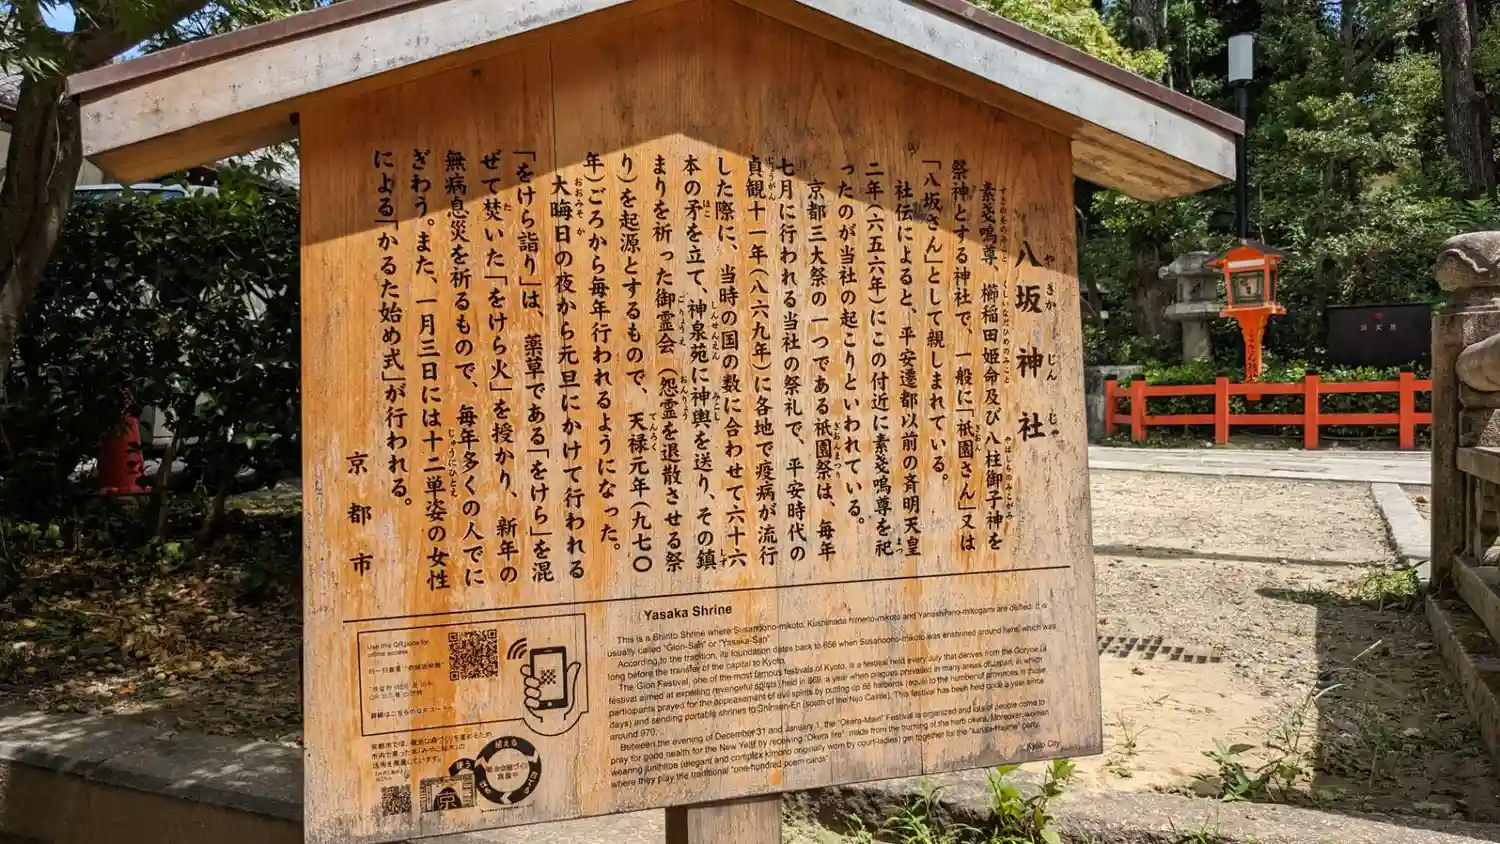 八坂神社
素戔嗚尊、櫛稲田姫命及び八柱御子神を
祭神とする神社で、一般に「祇園さん」又は
「八坂さん」として親しまれている。
社伝によると、平安遷都以前の斉明天皇
二年(六五六年)にこの付近に素戔嗚尊を祀
ったのが当社の起こりといわれている。
京都三大祭の一つである祇園祭は、毎年
七月に行われる当社の祭礼で、平安時代の
貞観十一年(八六九年)に各地で疫病が流行
した際に、当時の国の数に合わせて六十六
本の矛を立て、神泉苑に神輿を送り、その鎮
まりを祈った御霊会(怨霊を退散させる祭
り)を起源とするもので、天禄元年(九七〇
年)ごろから毎年行われるようになった。
大晦日の夜から元旦にかけて行われる
「をけら詣り」は、薬草である「をけら」を混
ぜて焚いた「をけら火」を授かり、新年の
無病息災を祈るもので、毎年多くの人でに
ぎわう。また、一月三日には十二単姿の女性
による「かるた始め式」が行われる。
京都市
Yasaka Shrine
This is a Shinto Shrine where Susanoono-mikoto, Kushinada himeno-mikoto and Yahashirano-mikogami are deified. It is
usually called "Gion-San" or "Yasaka-San".
According to the tradition, its foundation dates back to 656 when Susanoono-mikoto was enshrined around here, which was
long before the transfer of the capital to Kyoto.
The Gion Festival, one of the most famous festivals of Kyoto, is a festival held every July that derives from the Goryoe (a
festival aimed at expelling revengeful spirits) held in 869, a year when plagues prevailed in many areas of Japan, in which
participants prayed for the appeasement of evil spirits by putting up 66 halberds (equal to the number of provinces in those
days) and sending portable shrines to Shinsen-En (south of the Nijo Castle). This festival has been held once a year since
around 970.
Between the evening of December 31 and January 1, the "Okera-Mairi" Festival is organized and lots of people come to
pray for good health for the New Year by receiving "Okera fire", made from the burning of the herb okera. Moreover, woman
wearing junihitoe (elegant and complex kimono originally worn by court-ladies) get together for the "karuta-Hajime" party,
where they play the traditional "one-hundred poem cards"
Kyoto City
Use this QR code for
offline access
詳細はこちらのQRコード